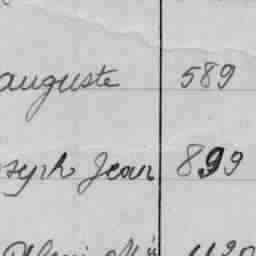 auguste 589
seph Jean 899